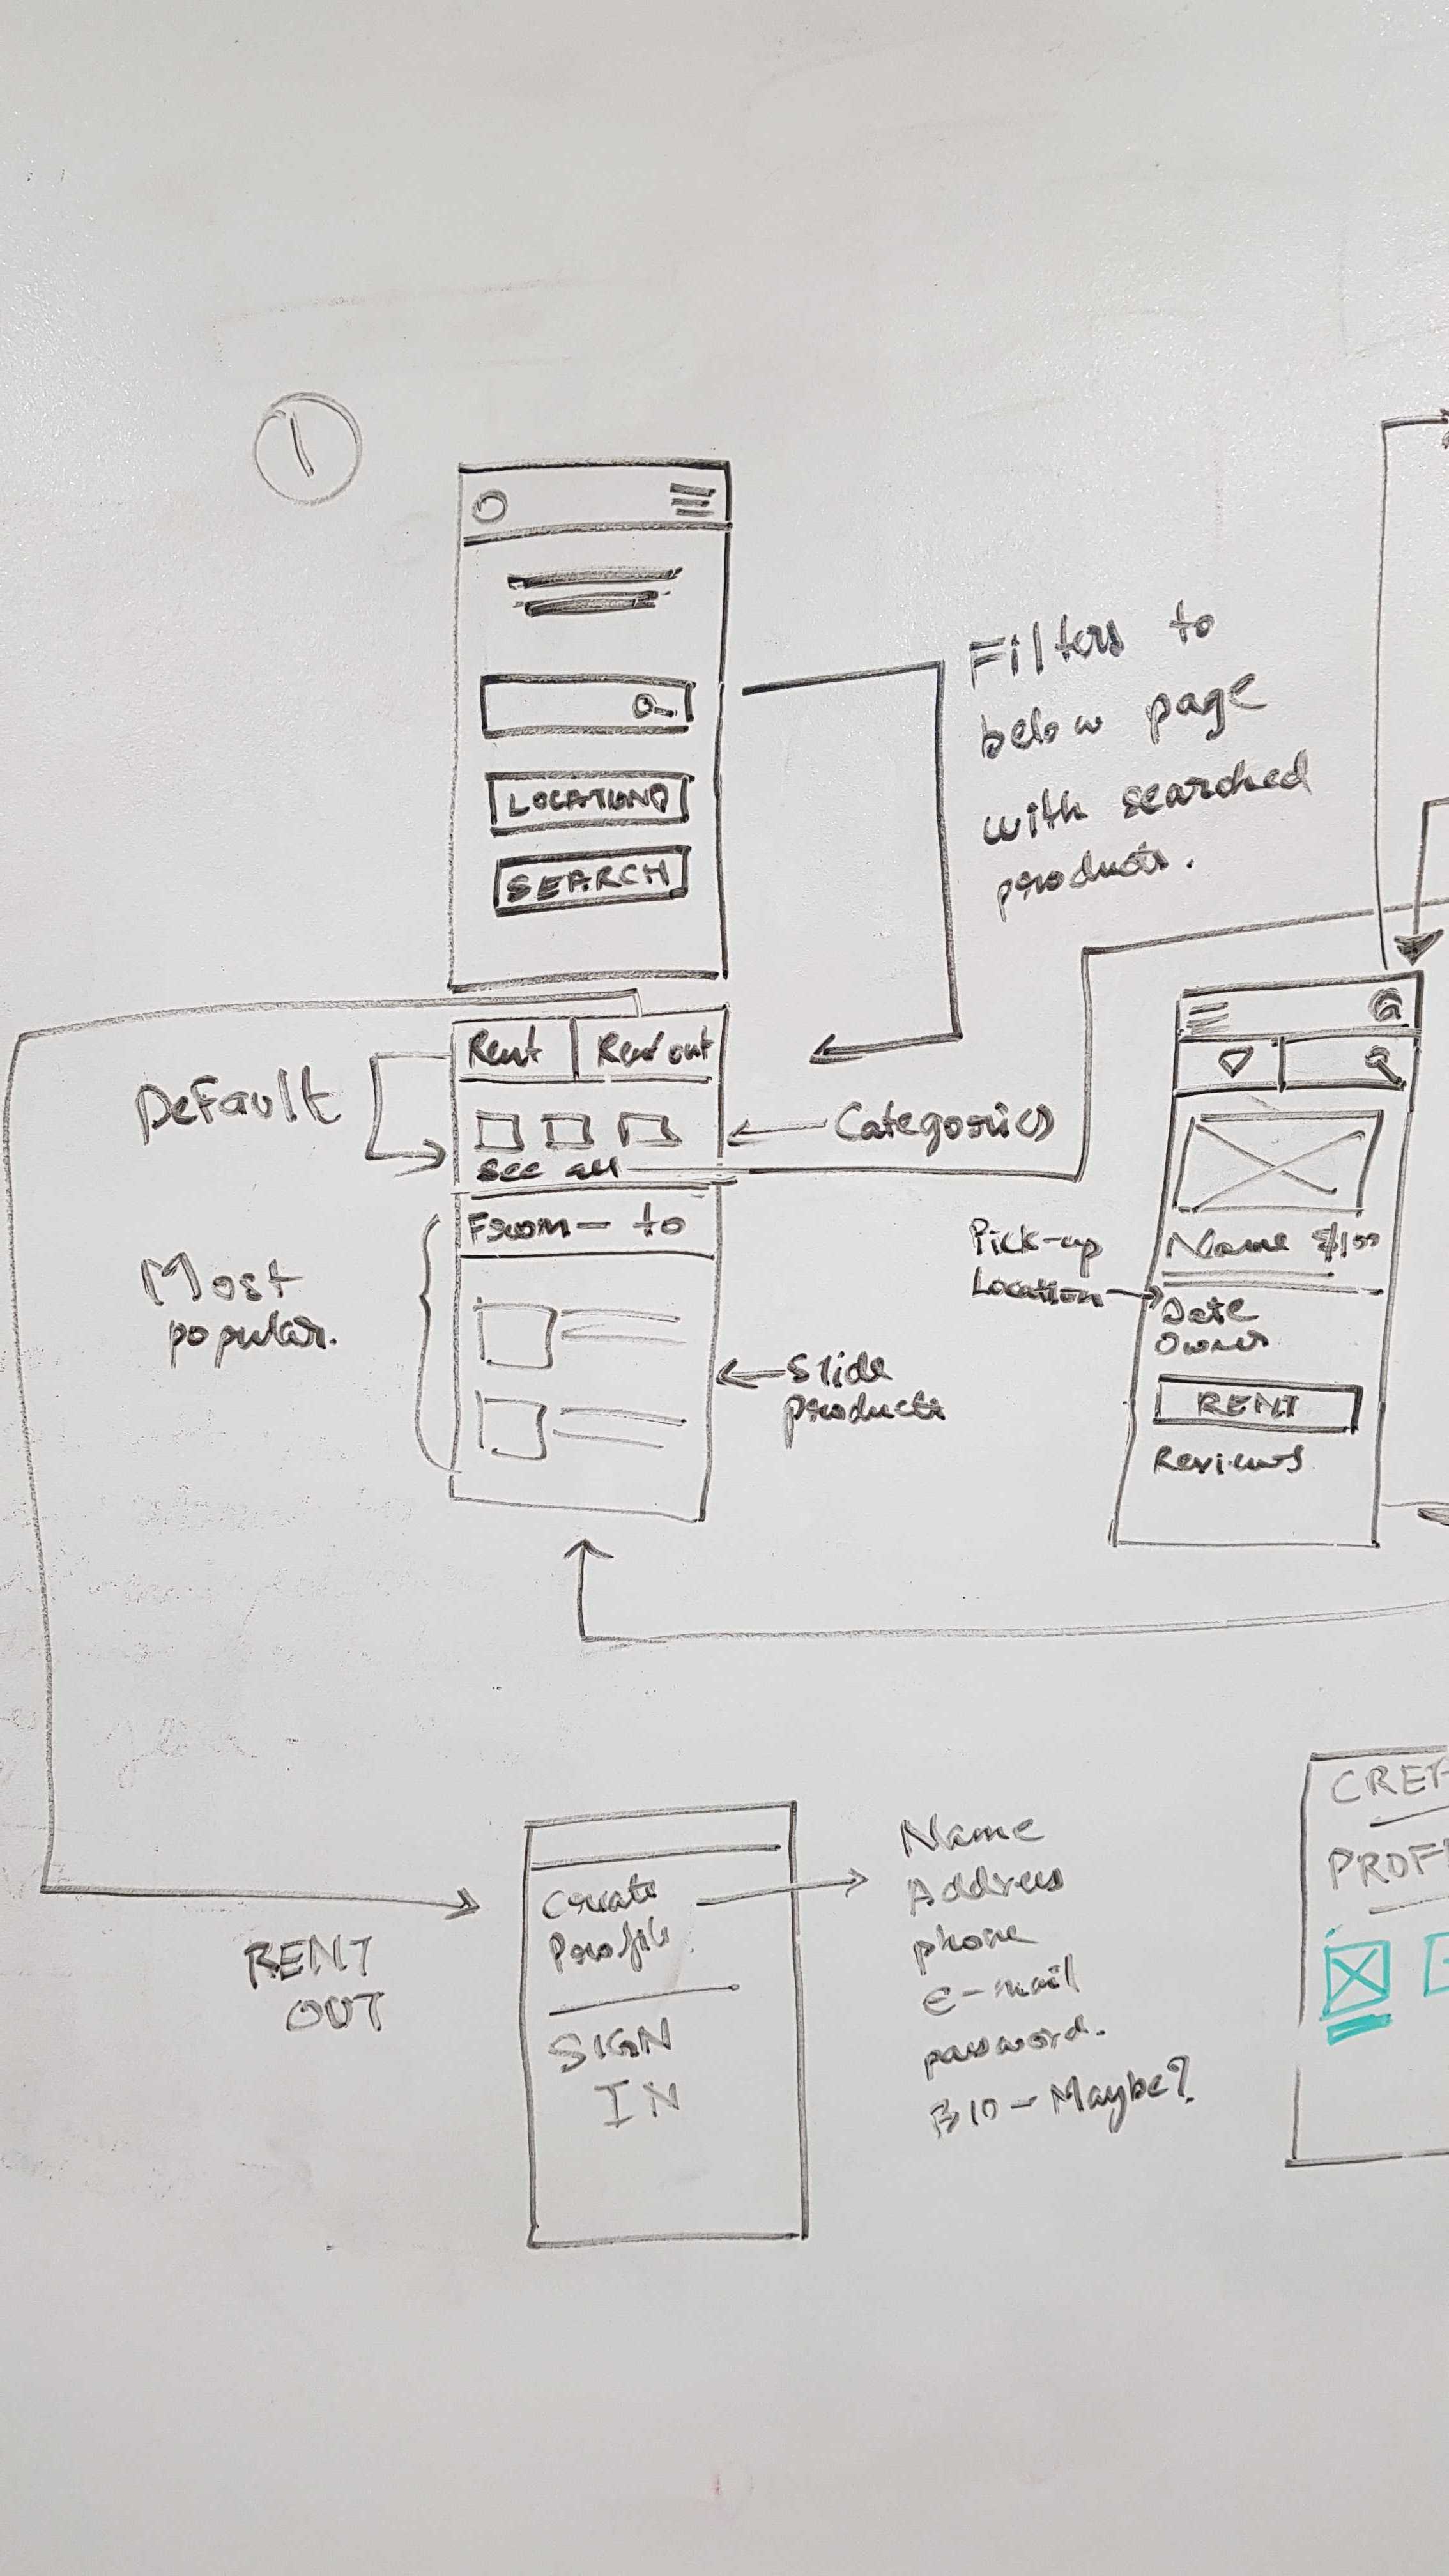 1
LOCATION
SEARCH
Filters to
below page
with searched
products.
Rent
Rent out
Default
Categories
See all
From - to
Most
popular.
Slide
products
Pick-up
Location
Name $100
Date
Owner
RENT
Reviews
RENT
OUT
Create
Profile
SIGN
IN
Name
Address
phone
e-mail
password.
BIO - Maybe?
CREA
PROFI